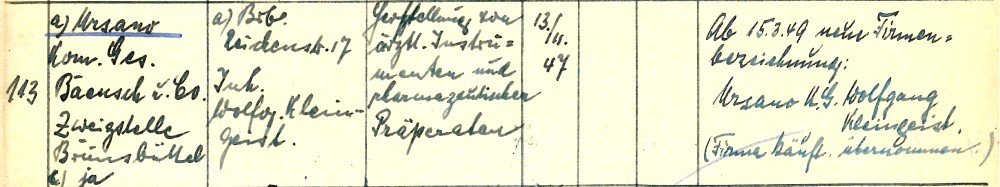 113
a) Ursano
Kom. Ges.
Baensch u. Co.
Zweigstelle
Brunsbüttel
b) ja
a) Brb.
Reichenstr. 17
Inh.
Wolfg. Klein-
geist.
Herstellung von
ärztl. Instru=
menten und
pharmazeutischer
Präperaten
13/
11.
47
Ab 15.3.49 neue Firmen=
bezeichnung:
Ursano K.G. Wolfgang
Kleingeist.
(Firma käufl. übernommen.)